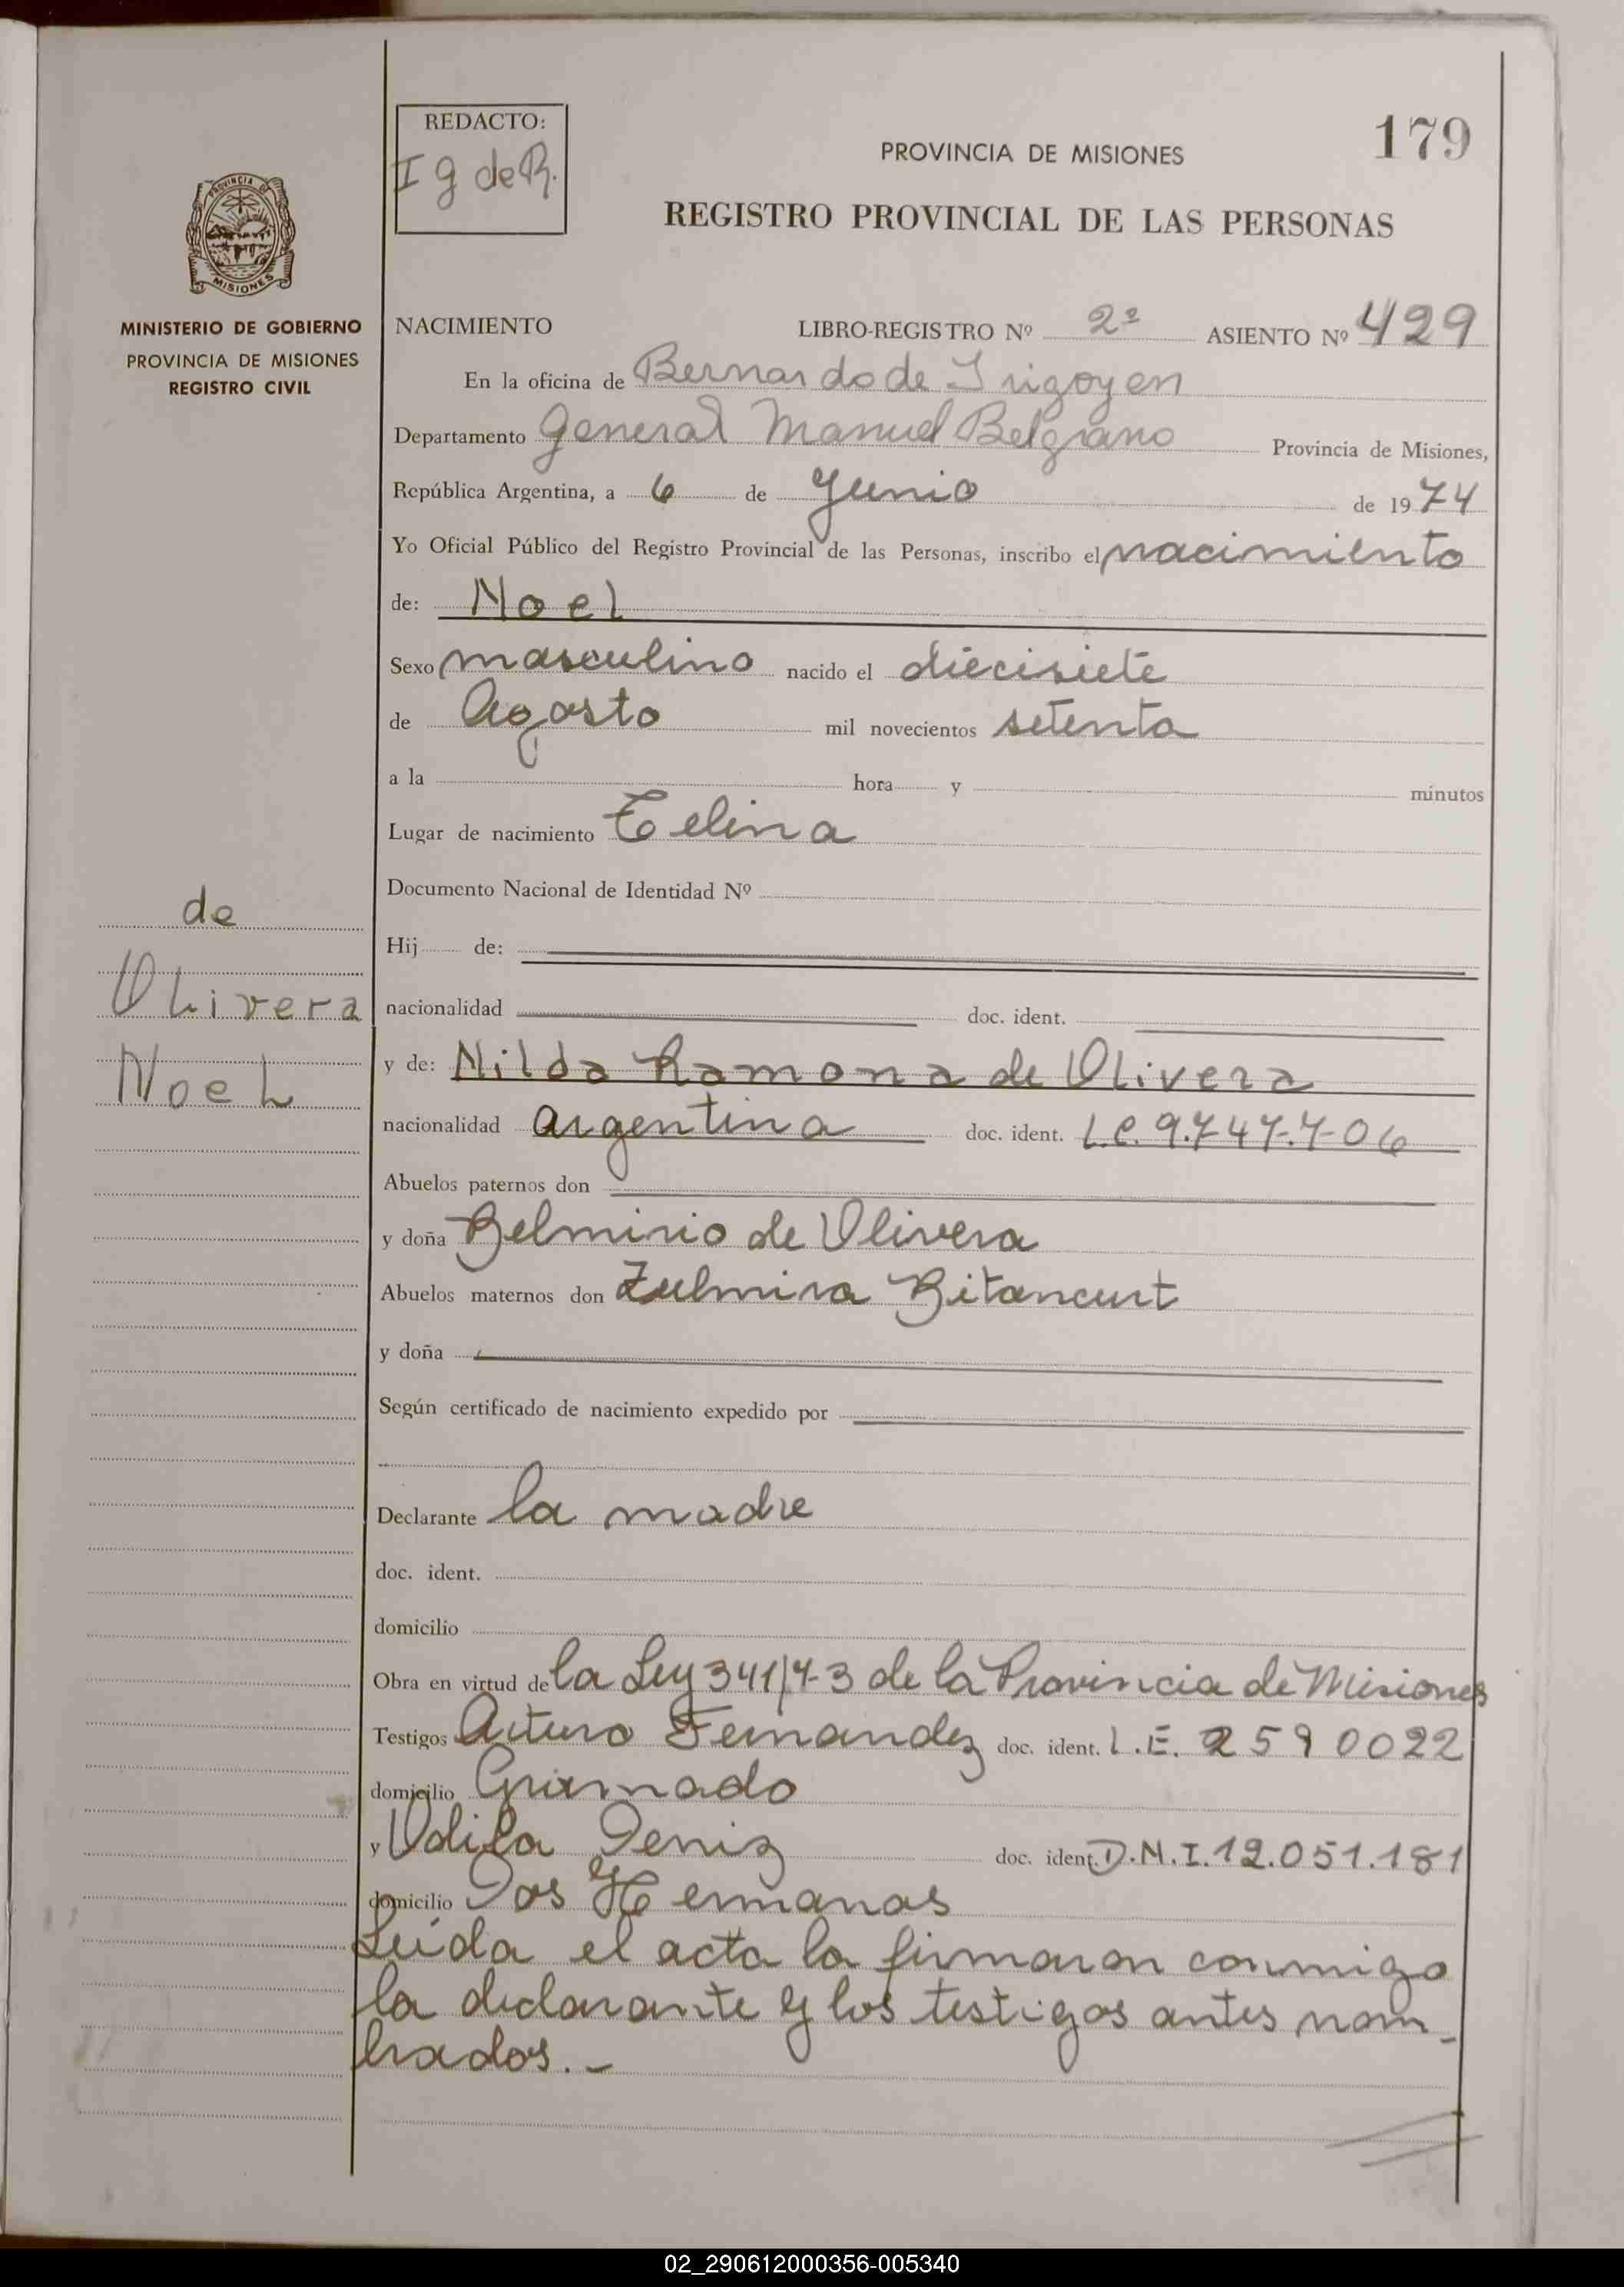 179
REDACTO:
I g de R.
PROVINCIA DE MISIONES
REGISTRO PROVINCIAL DE LAS PERSONAS
PROVINCIA DE
MISIONES
MINISTERIO DE GOBIERNO
PROVINCIA DE MISIONES
REGISTRO CIVIL
NACIMIENTO LIBRO-REGISTRO Nº 2º ASIENTO Nº 429
En la oficina de Bernardo de Irigoyen
Departamento General Manuel Belgrano Provincia de Misiones,
República Argentina, a 6 de Junio de 1974
Yo Oficial Público del Registro Provincial de las Personas, inscribo el nacimiento
de: Noel
Sexo masculino nacido el diecisiete
de Agosto mil novecientos setenta
a la hora y minutos
Lugar de nacimiento Celina
Documento Nacional de Identidad Nº
de
Olivera
Noel
Hij de:
nacionalidad doc. ident.
y de: Nilda Ramona de Olivera
nacionalidad argentina doc. ident. L.C. 9.747.706
Abuelos paternos don
y doña Belmirio de Olivera
Abuelos maternos don Zulmira Bitancurt
y doña
Según certificado de nacimiento expedido por
Declarante la madre
doc. ident.
domicilio
Obra en virtud de la Ley 341/73 de la Provincia de Misiones
Testigos Arturo Fernandez doc. ident. L.E. 2590022
domicilio Gramado
y Odila Deniz doc. ident. D.N.I. 12.051.181
domicilio Dos Hermanas
Leída el acta la firmaron conmigo
la declarante y los testigos antes nom-
brados.-
02_290612000356-005340